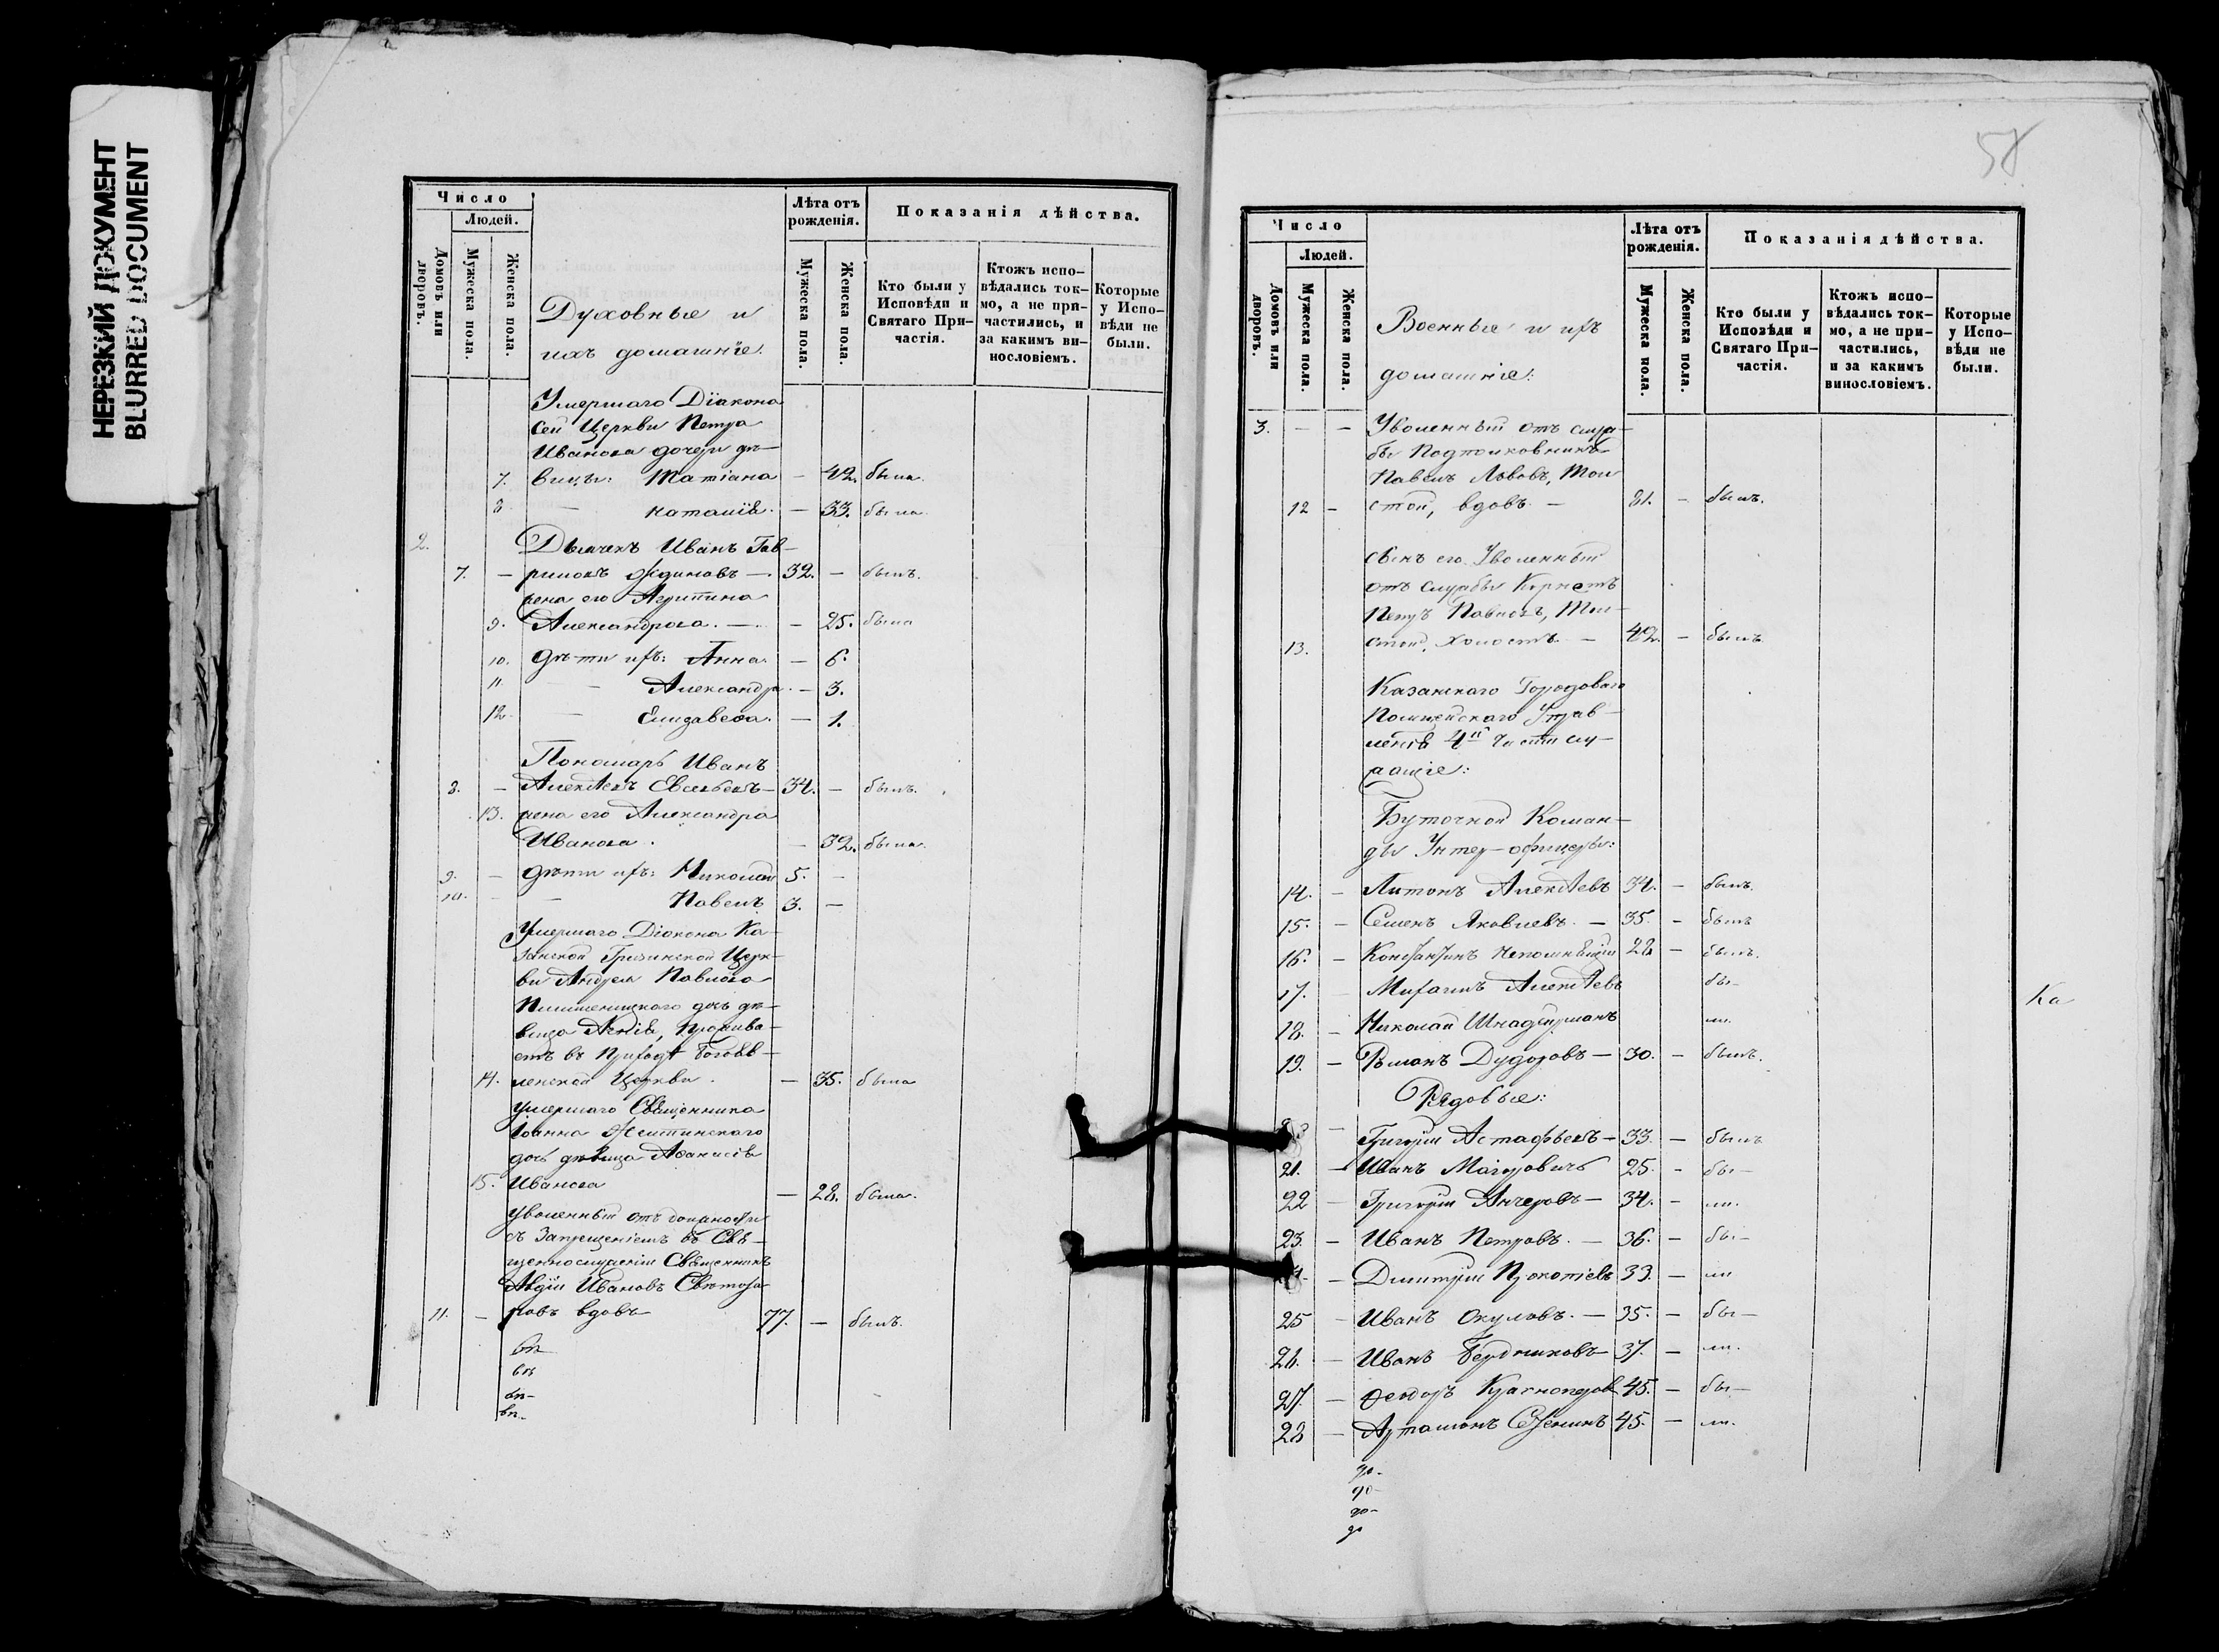 НЕРЕЗКИЙ ДОКУМЕНТ
BLURRED DOCUMENT
Число
Людей.
Домовъ или дворовъ.
Мужеска пола.
Женска пола.
Духовные и
ихъ домашніе:
Лѣта отъ рожденія.
Мужеска пола.
Женска пола.
Показанія дѣйства.
Кто были у Исповѣди и Святаго Причастія.
Ктожъ исповѣдались токмо, а не причастились, и за какимъ винословіемъ.
Которые у Исповѣди не были.
Умершаго Діакона
сей Церкви Петра
Иванова дочери дѣ-
7. вицы: Татіана — 42. была.
8. — Наталія. — 33. была.
2. Дьячекъ Иванъ Гав-
7. — риловъ — 32. — былъ.
жена его Агрипина
9. Александрова. — 25. была
10. дѣти ихъ: Анна. — 6.
11. — Александра. — 3.
12. — Елизавета. — 1.
Пономарь Иванъ
8. — Алексѣевъ Евсевьевъ — 34. — былъ.
13. жена его Александра
Иванова. — 32. была.
9. — дѣти ихъ: Николай 5. —
10. — — Павелъ 3. —
Умершаго Діакона Ка-
занской Грузинской Церк-
ви Андрея Павлова
дочь дѣ-
вица прожива-
етъ въ приходѣ Богояв-
14. ленской Церкви. — 35. была
умершаго Священника
Іоанна
дочь дѣвица Аѳанасія
15. Иванова — 28. была.
уволенный отъ должности
съ запрещеніемъ въ Свя-
щеннослуженіи Священникъ
Авдій Ивановъ
11. — ровъ вдовъ 77. — былъ.
58
Число
Людей.
Домовъ или дворовъ.
Мужеска пола.
Женска пола.
Военные и ихъ
домашніе:
Лѣта отъ рожденія.
Мужеска пола.
Женска пола.
Показанія дѣйства.
Кто были у Исповѣди и Святаго Причастія.
Ктожъ исповѣдались токмо, а не причастились, и за какимъ винословіемъ.
Которые у Исповѣди не были.
3. — — Уволенный отъ служ-
бы Подполковникъ
Павелъ Львовъ, Тол-
12 — стой, вдовъ — 81. — былъ.
сынъ его Уволенный
отъ службы Корнетъ
Петръ Павловъ, Тол-
13. стой, холостъ. — 42. — былъ
Казанскаго Городоваго
Полицейскаго Управ-
ленія 4й Части слу-
жащіе:
Буточной Коман-
ды Унтер-офицеры:
14. — Антонъ Алексѣевъ 34. — былъ.
15. — Семенъ Яковлевъ. — 35. — былъ
16. — Константинъ Непомнящій 28 — былъ.
17. — Михаилъ Алексѣевъ бы-
18. — Николай лъ.
19. — Романъ Дудоровъ — 30. — былъ.
Рядовые:
— Григорій Астафьевъ — 33. — былъ
21. — Иванъ 25. — бы-
22 — Григорій — 34. — лъ.
23. — Иванъ Петровъ. — 36. — бы-
— Димитрій Прокопіевъ 33. — лъ
25 — Иванъ Окуловъ. — 35. — бы-
26. — Иванъ Бердниковъ 37. — лъ.
27. — Ѳеодоръ 45. — бы-
28 — Артамонъ 45. — лъ.
Ка